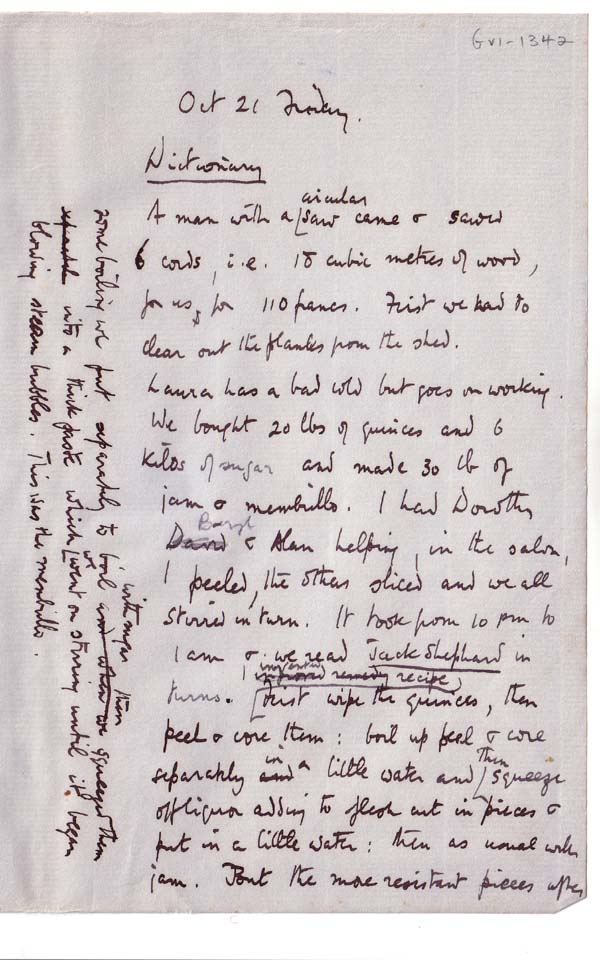 GVI-1342
Oct 21 Friday.
Dictionary
A man with a circular saw came & sawed
6 cords, i.e. 18 cubic metres of wood,
for us, for 110 francs. First we had to
clear out the planks from the shed.
Laura has a bad cold but goes on working.
We bought 20 lbs of quinces and 6
kilos of sugar and made 30 lb of
jam & membrillo. I had Dorothy
David Beryl & Alan helping, in the salon,
I peeled, the others sliced and we all
stirred in turn. It took from 10 pm to
1 am & we read Jack Shephard in
turns. I invented improved remedy recipe,
First wipe the quinces, then
peel & core them: boil up peel & core
separately and in a little water and then squeeze
off liquor adding to flesh cut in pieces &
put in a little water: then as usual with
jam. But the more resistant pieces after
some boiling we put separately to boil with sugar and when we then squeezed them
separated into a thick paste which we went on stirring until it began
blowing steam bubbles. This was the membrillo.